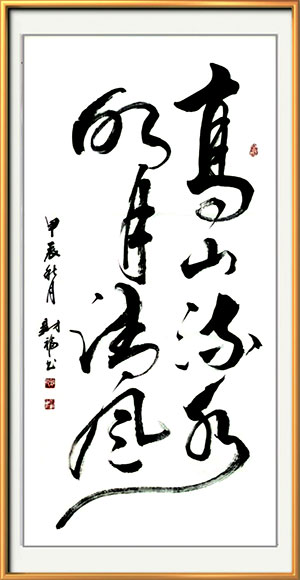 高山流水
明月清风
甲辰秋月
财福书